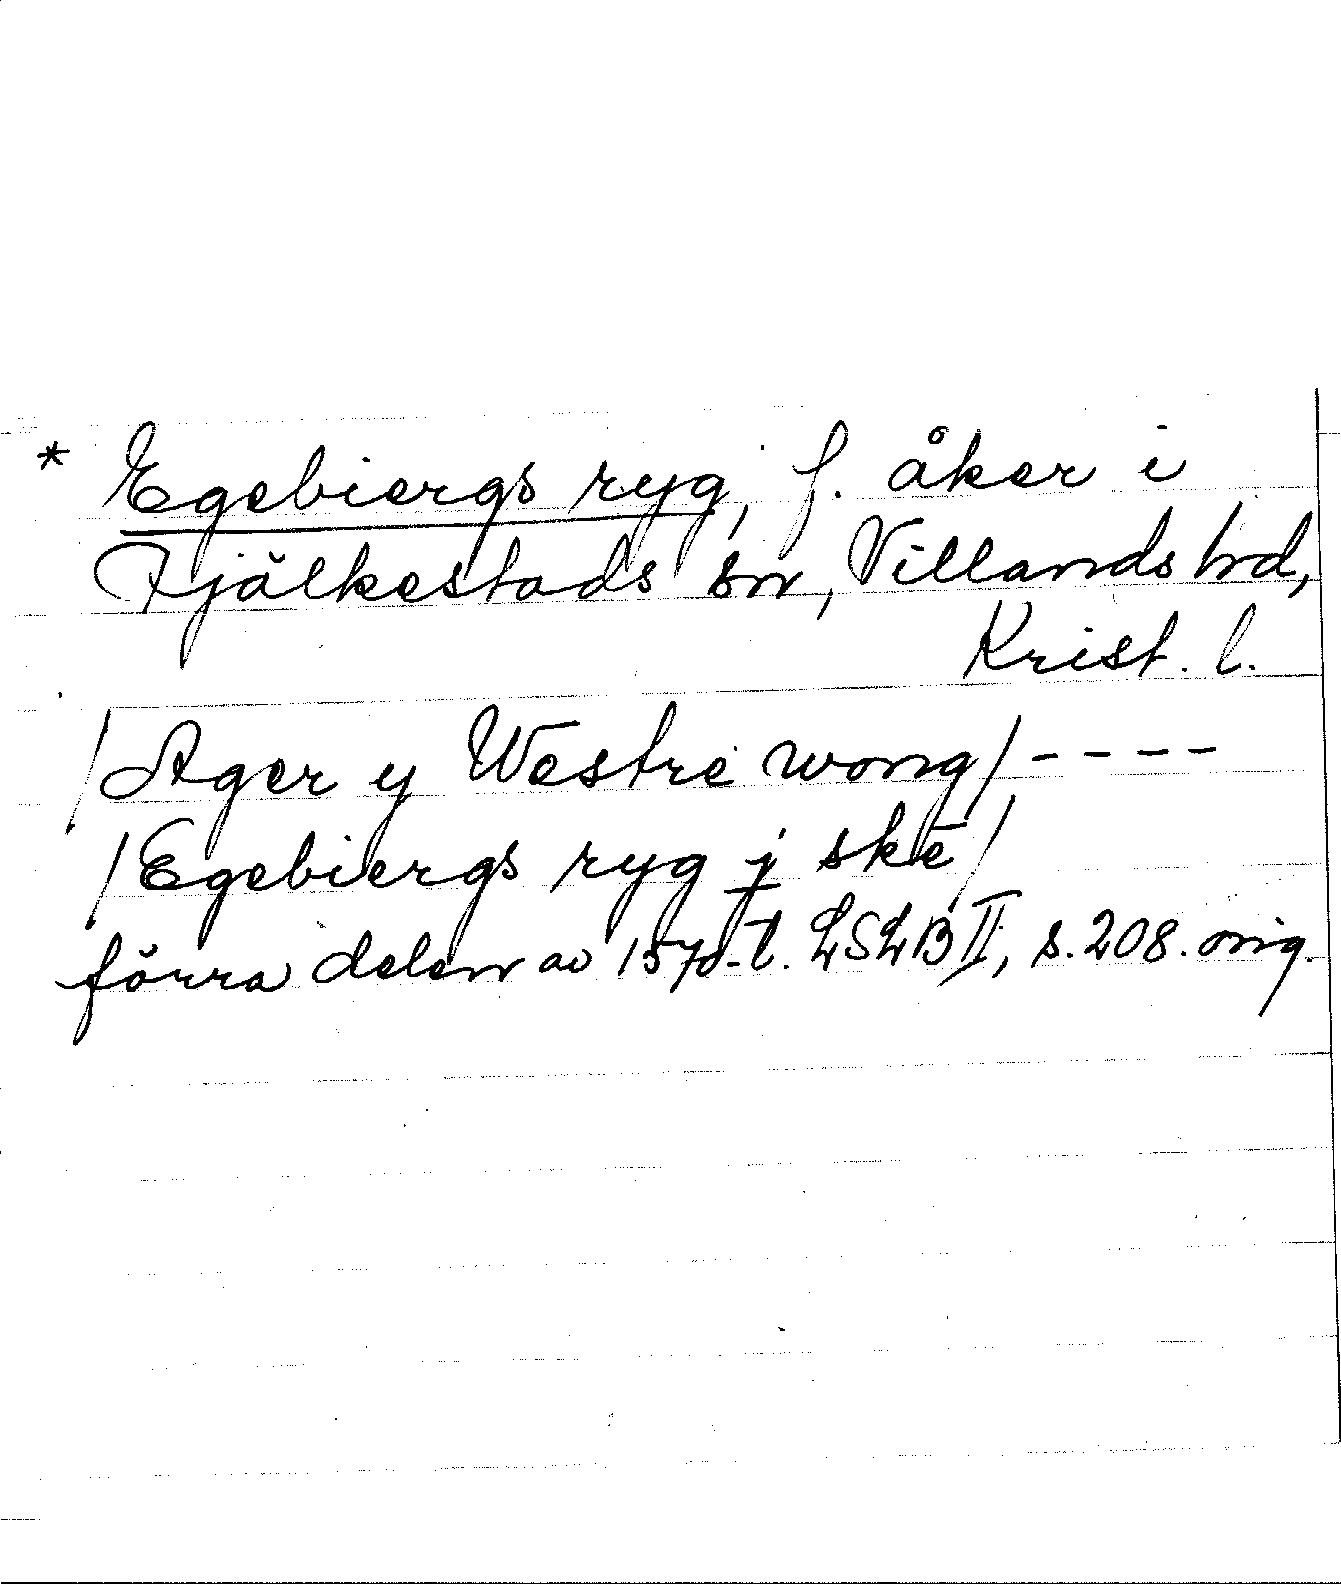 * Egebiergs ryg, f. åker i
Fjälkestads sn, Villands hd,
Krist. l.
/Ager y Westre wong/ - - - -
/Egebiergs ryg j skē/
förra delen av 1570-t. LSLB II, s. 208. orig.